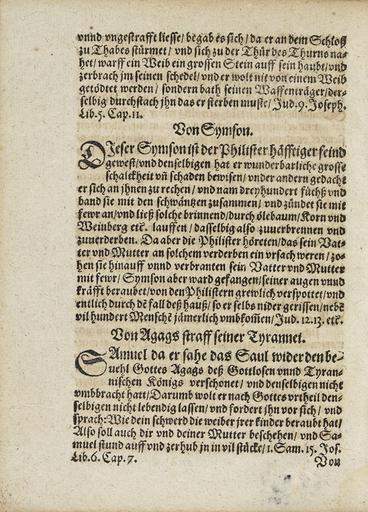 vnnd vngestrafft liesse/ begab es sich/ da er an dem Schloß
zu Thabes stürmet/ vnd sich zu der Thür des Thurns na-
het/ warff ein Weib ein grossen Stein auff sein haubt/ vnd
zerbrach jm seinen schedel/ vnd er wolt nit von einem Weib
getödtet werden/ sondern bath seinen Waffenträger/ der-
selbig durchstach jhn das er sterben muste/ Jud. 9. Joseph.
Lib. 5. Cap. 11.
Von Symson.
DJeser Symson ist der Philister häfftiger feind
gewest/ vnd denselbigen hat er wunderbarliche grosse
schalckheit vñ schaden bewisen/ vnder andern gedacht
er sich an jhnen zu rechen/ vnd nam dreyhundert füchß vnd
band sie mit den schwäntzen zusammen/ vnd zündet sie mit
fewr an/ vnd ließ solche brinnend/ durch ölebaum/ Korn vnd
Weinberg etc̃. lauffen/ dasselbig also zuuerbrennen vnd
zuuerderben. Da aber die Philister höreten/ das sein Vat-
ter vnd Mutter an solchem verderben ein vrsach weren/ zo-
hen sie hinauff vnnd verbranten sein Vatter vnd Mutter
mit fewr/ Symson aber ward gefangen/ seiner augen vnnd
kräfft beraubet/ von den Philistern grewlich verspottet/ vnd
entlich durch dẽ fall deß hauß/ so er selbs nider gerissen/ nebẽ
vil hundert Menschẽ jämerlich vmbkom̃en/ Jud. 12. 13. etc̃.
Von Agags straff seiner Tyrannei.
SAmuel da er sahe das Saul wider den be-
uehl Gottes Agags deß Gottlosen vnnd Tyran-
nischen Königs verschonet/ vnd denselbigen nicht
vmbbracht hatt/ Darumb wolt er nach Gottes vrtheil den-
selbigen nicht lebendig lassen/ vnd fordert jhn vor sich/ vnd
sprach: Wie dein schwerd die weiber jrer kinder beraubt hat/
Also soll auch dir vnd deiner Mutter beschehen/ vnd Sa-
muel stund auff vnd zerhub jn in vil stücke/ 1. Sam. 15. Jos.
Lib. 6. Cap. 7.
Von